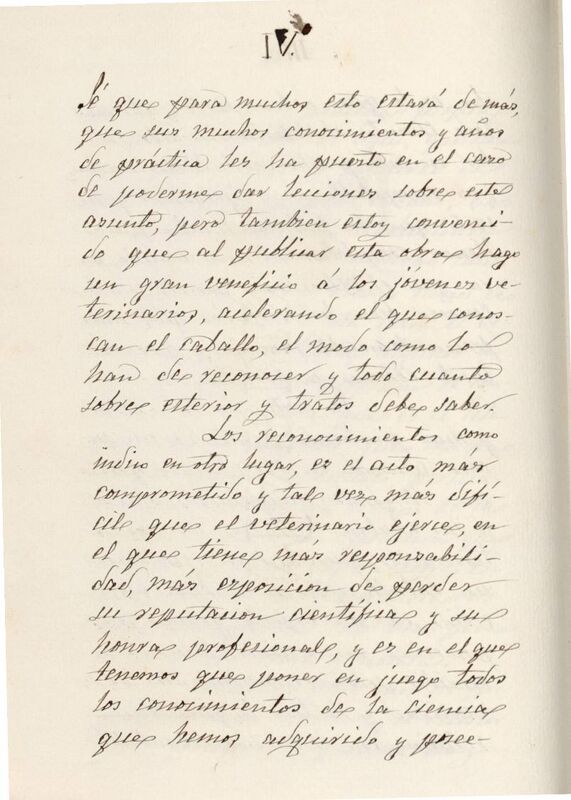 IV
Sé que para muchos esto estará demás,
que sus muchos conocimientos y años
de práctica les ha puesto en el caso
de poderme dar lecciones sobre este
asunto, pero tambien estoy convenci-
do que al publicar esta obra hago
un gran veneficio á los jóvenes ve-
terinarios, acelerando el que conos-
can el caballo, el modo como lo
han de reconocer y todo cuanto
sobre esterior y tratos debe saber.
Los reconocimientos como
indico en otro lugar, es el acto más
comprometido y tal vez más difí-
cil que el veterinario ejerce, en
el que tiene más responsabili-
dad, más exposicion de perder
su reputacion científica y su
honra profesional, y es en el que
tenemos que poner en juego todos
los conocimientos de la ciencia
que hemos adquirido y posee-